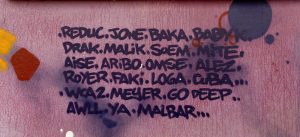 .REDUC. JONE. BAKA. BABY.K.
DRAK. MALIK. SOEM. MITE.
AISE. ARIBO. OMSE. ALEZ.
ROYER. FAKI. LOGA. CUBA...
..WCA2. MEYER. GO DEEP..
AWLL. YA. MALBAR...